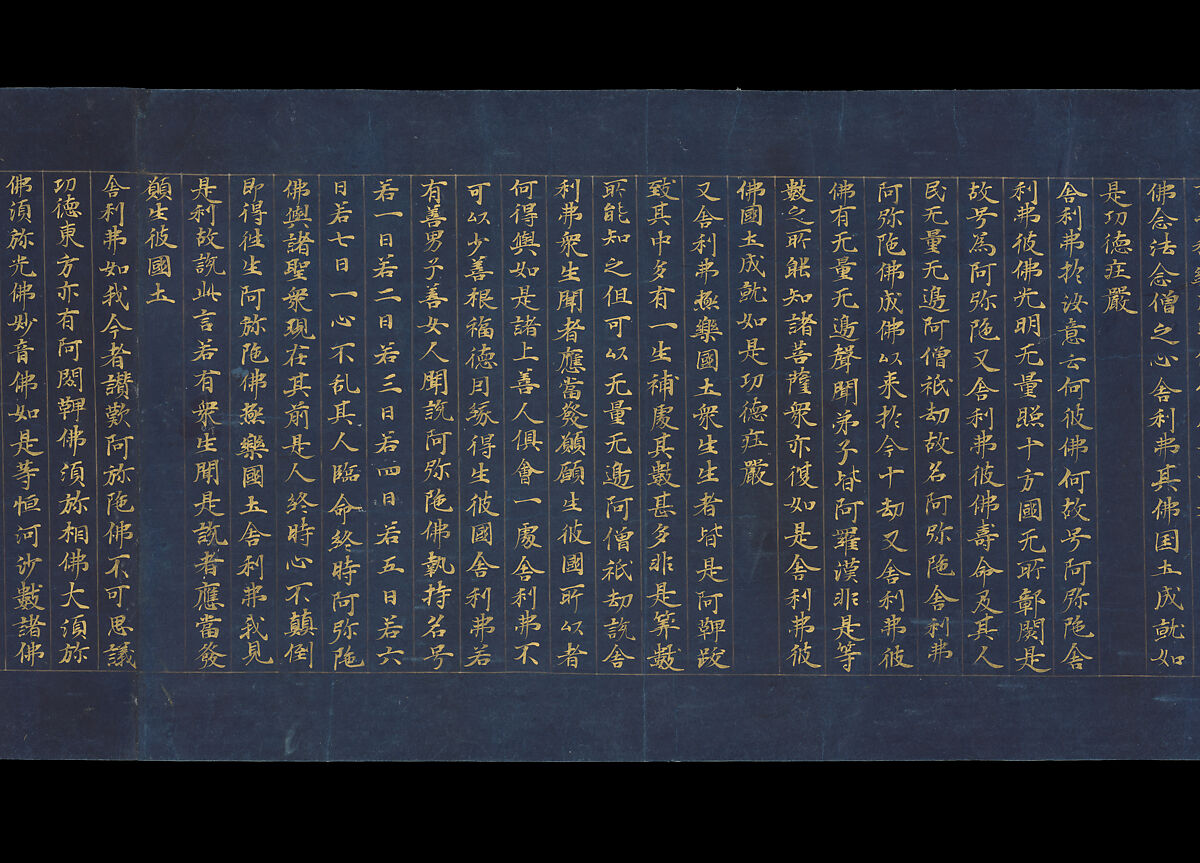 佛念法念僧之心舍利弗其佛国土成就如
是功德疘嚴
舍利弗扵汝意云何彼佛何故号阿弥陁舍
利弗彼佛光明无量照十方國无所鄣閡是
故号為阿弥陁又舍利弗彼佛壽命及其人
民无量无邊阿僧祇劫故名阿弥陁舍利弗
阿弥陁佛成佛以来扵今十劫又舍利弗彼
佛有无量无邊聲聞弟子皆阿羅漢非是筭
數之所能知諸菩薩衆亦復如是舍利弗彼
佛國土成就如是功德疘嚴
又舍利弗極樂國土衆生生者皆是阿鞞跋
致其中多有一生補處其數甚多非是筭數
所能知之但可以无量无邊阿僧祇劫說舍
利弗衆生聞者應當發願願生彼國所以者
何得與如是諸上善人俱會一處舍利弗不
可以少善根福德因緣得生彼國舍利弗若
有善男子善女人聞說阿弥陁佛執持名号
若一日若二日若三日若四日若五日若六
日若七日一心不乱其人臨命終時阿弥陁
佛與諸聖衆現在其前是人終時心不顛倒
即得往生阿弥陁佛極樂國土舍利弗我見
是利故說此言若有衆生聞是說者應當發
願生彼國土
舍利弗如我今者讃歎阿弥陁佛不可思議
功德東方亦有阿閦鞞佛須弥相佛大須弥
佛須弥光佛妙音佛如是等恒河沙數諸佛